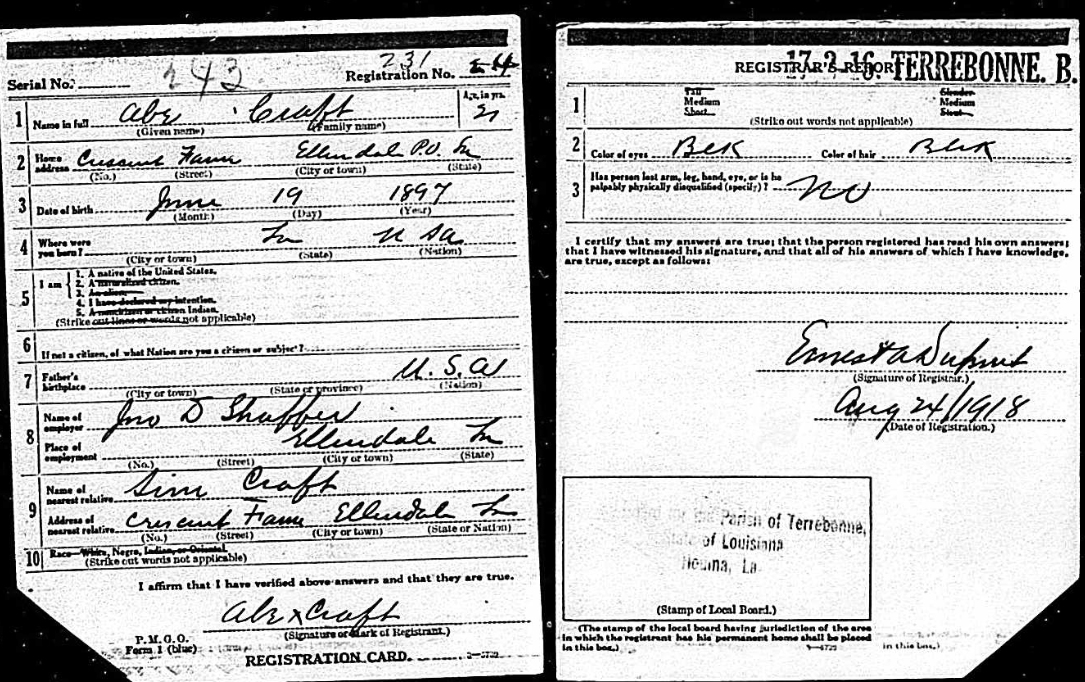 Serial No. 243
231
Registration No. 24
1 Name in full Abe Craft
(Given name) (Family name)
Age, in yrs. 21
2 Home address Crescent Farm Ellendale P.O. La
(No.) (Street) (City or town) (State)
3 Date of birth June 19 1897
(Month) (Day) (Year)
4 Where were you born? La U S A
(City or town) (State) (Nation)
5 I am
1. A native of the United States.
2. A naturalized citizen.
3. An alien.
4. I have declared my intention.
5. A noncitizen or citizen Indian.
(Strike out lines or words not applicable)
6 If not a citizen, of what Nation are you a citizen or subject?
7 Father's birthplace U. S. A
(City or town) (State or province) (Nation)
8 Name of employer Jno D Shaffer
Place of employment Ellendale La
(No.) (Street) (City or town) (State)
9 Name of nearest relative Sim Craft
Address of nearest relative Crescent Farm Ellendale La
(No.) (Street) (City or town) (State or Nation)
10 Race—White, Negro, Indian, or Oriental.
(Strike out words not applicable)
I affirm that I have verified above answers and that they are true.
Abe x Craft
(Signature or Mark of Registrant.)
P. M. G. O.
Form 1 (blue)
REGISTRATION CARD.
17-2-16. TERREBONNE. B.
REGISTRAR'S REPORT
1 Tall Medium Short Slender Medium Stout
(Strike out words not applicable)
2 Color of eyes Blk Color of hair Blk
3 Has person lost arm, leg, hand, eye, or is he palpably physically disqualified (specify)? No
I certify that my answers are true; that the person registered has read his own answers;
that I have witnessed his signature, and that all of his answers of which I have knowledge,
are true, except as follows:
Ernest A Dupont
(Signature of Registrar.)
Aug 24/1918
(Date of Registration.)
for the Parish of Terrebonne,
State of Louisiana
Houma, La.
(Stamp of Local Board.)
(The stamp of the local board having jurisdiction of the area
in which the registrant has his permanent home shall be placed
in this box.)
in this box.)